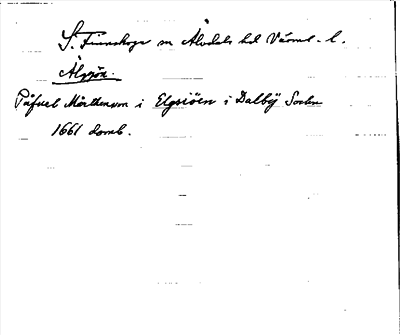 S. Finnskoga sn Älvdals hd Värml. l.
Älgsjön.
Påfuel Mårthenson i Elgsiöen i Dalbÿ Sochn
1661 domb.